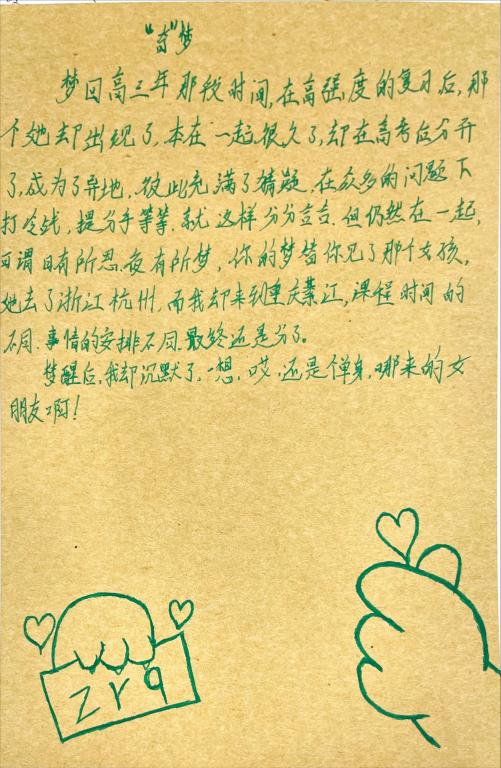 "奇"梦
梦回高三年那段时间,在高强度的复习后,那
个她却出现了,本在一起很久了,却在高考后分开
了,成为了异地,彼此充满了猜疑,在众多的问题下
打冷战,提分手等等.就这样分分合合.但仍然在一起,
可谓日有所思.夜有所梦,你的梦替你见了那个女孩,
她去了浙江杭州,而我却来到重庆綦江,课程时间的
不同.事情的安排不同.最终还是分了。
梦醒后,我却沉默了,一想,哎,还是单身,哪来的女
朋友啊!
zrq